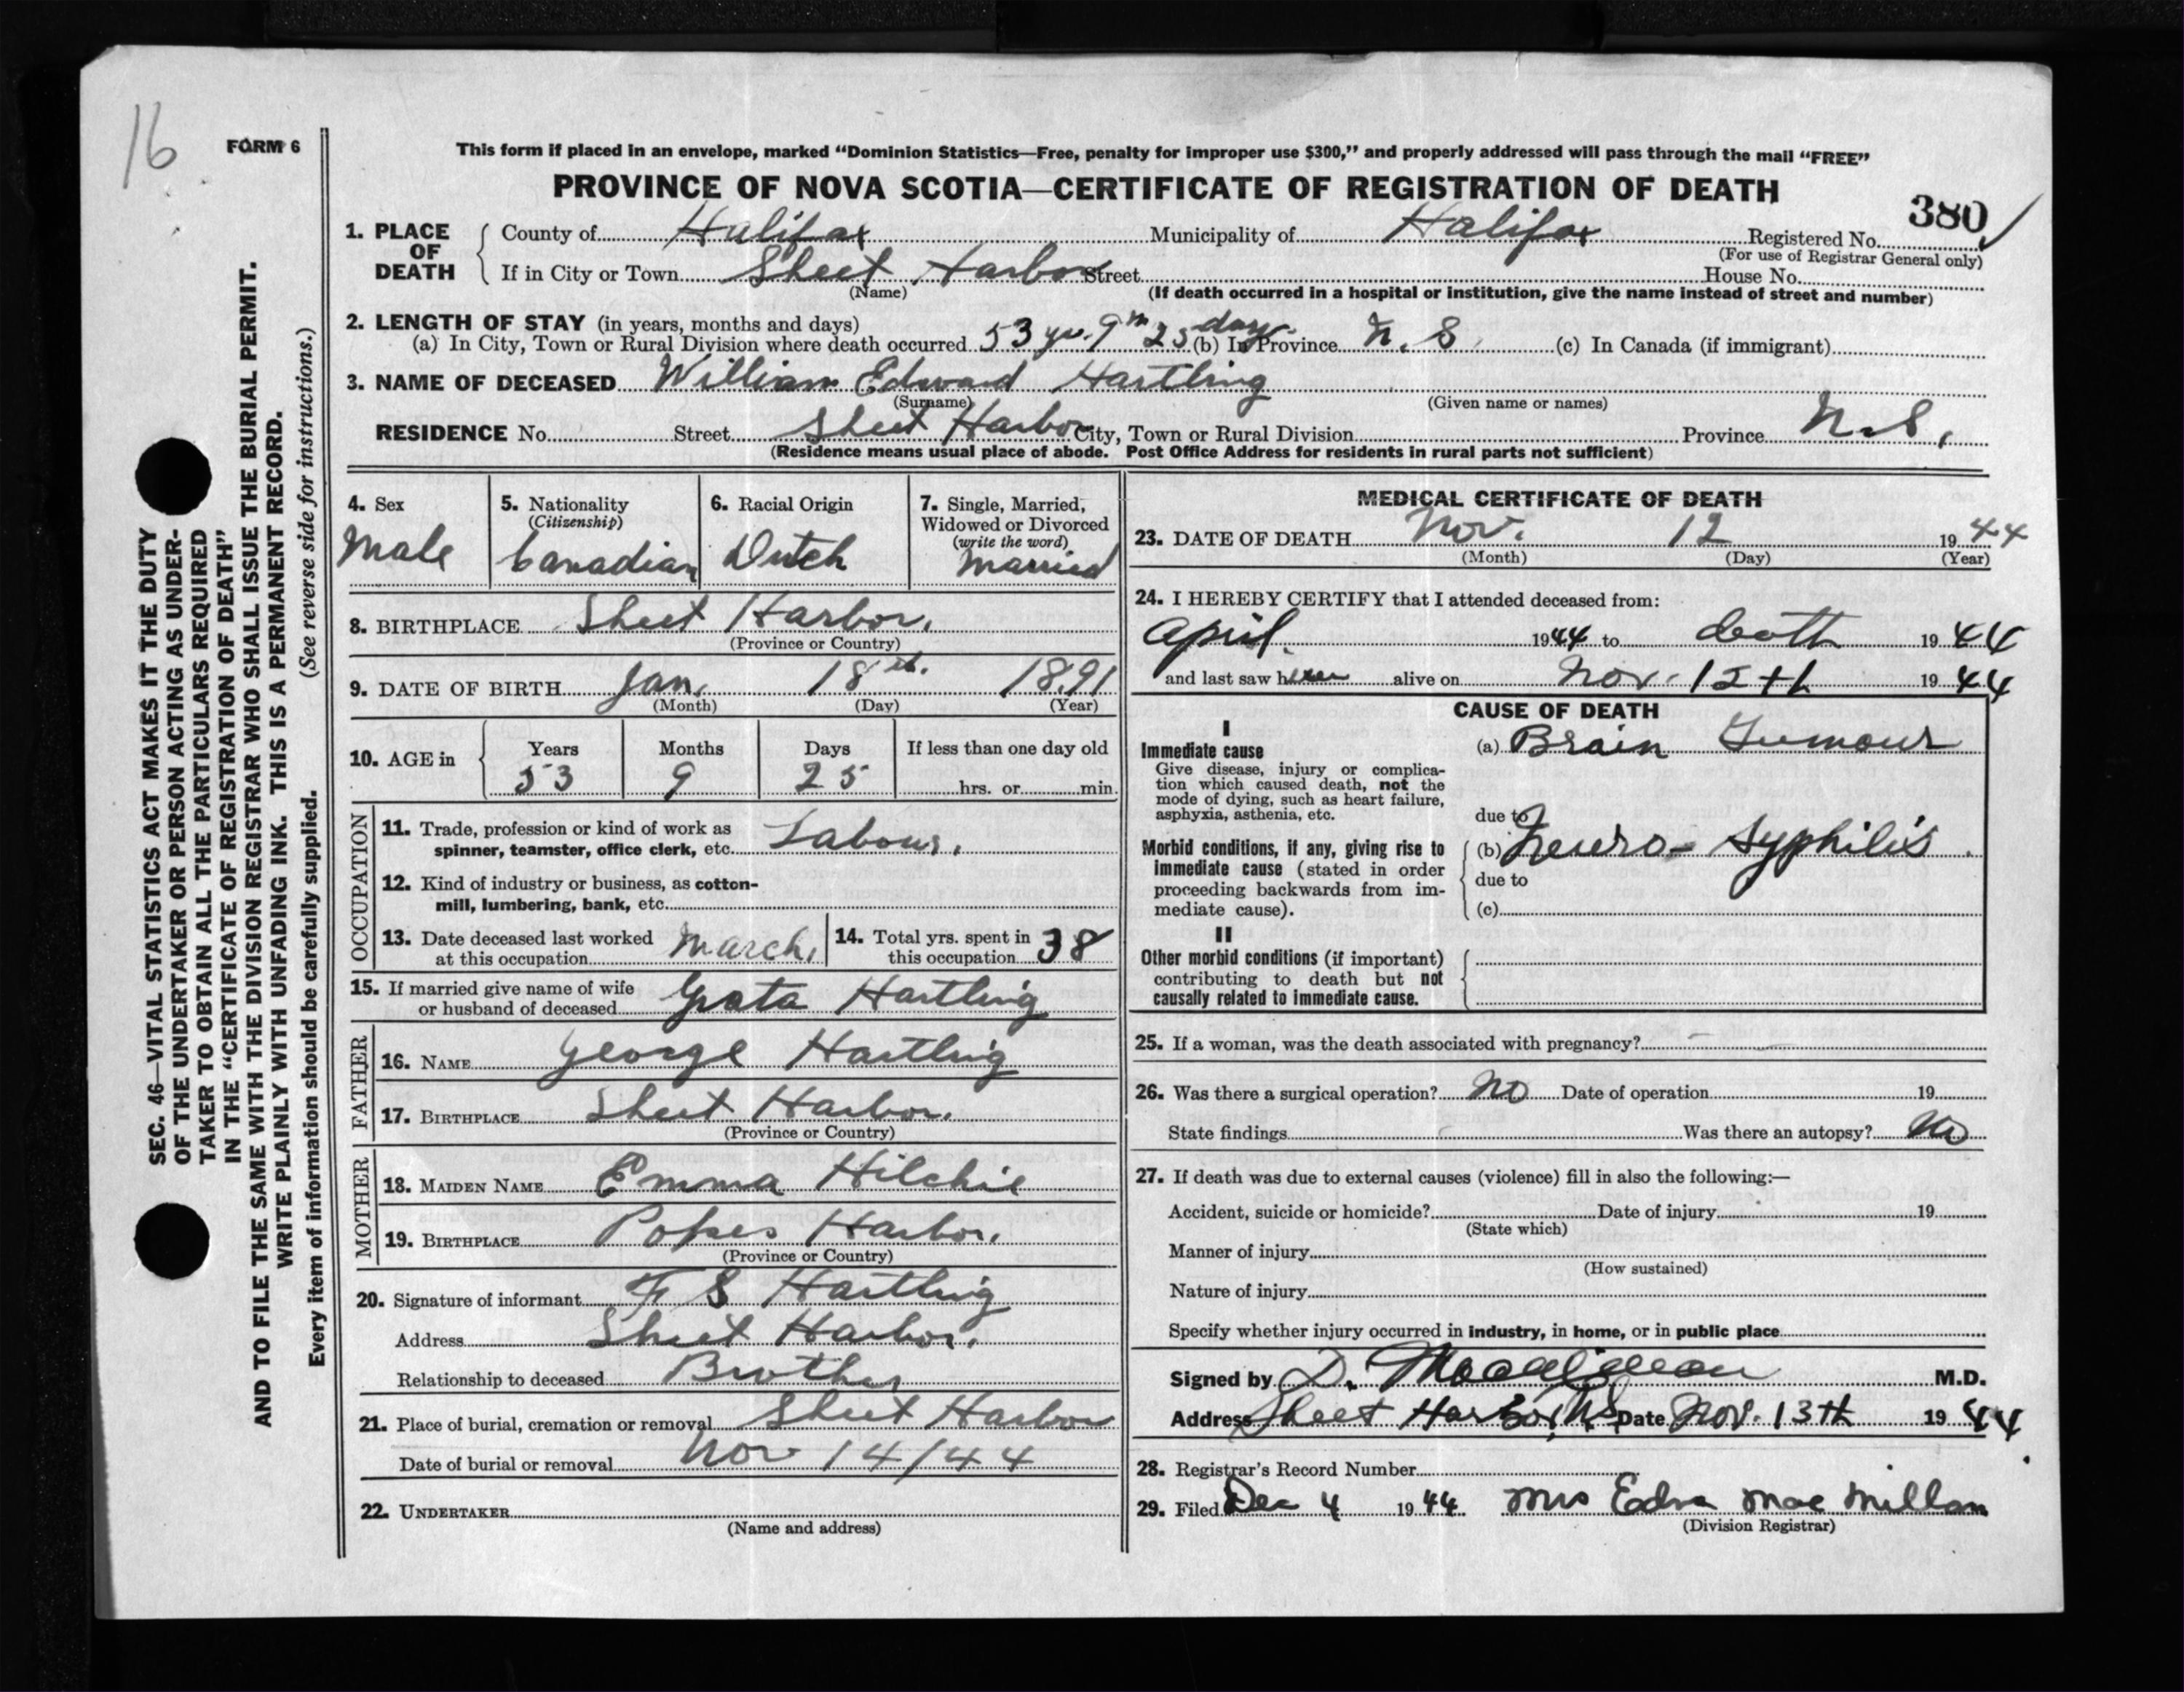 16
FORM 6
This form if placed in an envelope, marked “Dominion Statistics—Free, penalty for improper use $300,” and properly addressed will pass through the mail “FREE”
PROVINCE OF NOVA SCOTIA—CERTIFICATE OF REGISTRATION OF DEATH
380 ✓
1. PLACE OF DEATH
County of Halifax Municipality of Halifax Registered No.
(For use of Registrar General only)
If in City or Town Sheet Harbor Street House No.
(Name) (If death occurred in a hospital or institution, give the name instead of street and number)
2. LENGTH OF STAY (in years, months and days)
(a) In City, Town or Rural Division where death occurred 53 yr. 9 m 25 days (b) In Province N. S. (c) In Canada (if immigrant)
3. NAME OF DECEASED William Edward Hartling
(Surname) (Given name or names)
RESIDENCE No. Street Sheet Harbor City, Town or Rural Division Province N.S.
(Residence means usual place of abode. Post Office Address for residents in rural parts not sufficient)
SEC. 46—VITAL STATISTICS ACT MAKES IT THE DUTY
OF THE UNDERTAKER OR PERSON ACTING AS UNDER-
TAKER TO OBTAIN ALL THE PARTICULARS REQUIRED
IN THE “CERTIFICATE OF REGISTRATION OF DEATH”
AND TO FILE THE SAME WITH THE DIVISION REGISTRAR WHO SHALL ISSUE THE BURIAL PERMIT.
WRITE PLAINLY WITH UNFADING INK. THIS IS A PERMANENT RECORD.
Every item of information should be carefully supplied. (See reverse side for instructions.)
4. Sex
Male
5. Nationality
(Citizenship)
Canadian
6. Racial Origin
Dutch
7. Single, Married,
Widowed or Divorced
(write the word)
Married
8. BIRTHPLACE Sheet Harbor.
(Province or Country)
9. DATE OF BIRTH Jan. 18th. 1891
(Month) (Day) (Year)
10. AGE in
Years Months Days If less than one day old
53 9 25 hrs. or min.
OCCUPATION
11. Trade, profession or kind of work as
spinner, teamster, office clerk, etc. Labour.
12. Kind of industry or business, as cotton-
mill, lumbering, bank, etc.
13. Date deceased last worked
at this occupation March.
14. Total yrs. spent in
this occupation 38
15. If married give name of wife
or husband of deceased Greta Hartling
FATHER
16. NAME George Hartling
17. BIRTHPLACE Sheet Harbor.
(Province or Country)
MOTHER
18. MAIDEN NAME Emma Hilchie
19. BIRTHPLACE Popes Harbor.
(Province or Country)
20. Signature of informant F S Hartling
Address Sheet Harbor.
Relationship to deceased Brother
21. Place of burial, cremation or removal Sheet Harbor
Date of burial or removal Nov 14/44
22. UNDERTAKER
(Name and address)
MEDICAL CERTIFICATE OF DEATH
23. DATE OF DEATH Nov. 12 1944
(Month) (Day) (Year)
24. I HEREBY CERTIFY that I attended deceased from:
April 1944 to death 1944
and last saw h alive on Nov. 12th 1944
CAUSE OF DEATH
I
Immediate cause
Give disease, injury or complica-
tion which caused death, not the
mode of dying, such as heart failure,
asphyxia, asthenia, etc.
(a) Brain Tumour
due to
Morbid conditions, if any, giving rise to
immediate cause (stated in order
proceeding backwards from im-
mediate cause).
(b) Neuro-Syphilis.
due to
(c)
II
Other morbid conditions (if important)
contributing to death but not
causally related to immediate cause.
25. If a woman, was the death associated with pregnancy? —
26. Was there a surgical operation? No Date of operation 19
State findings Was there an autopsy? No
27. If death was due to external causes (violence) fill in also the following:—
Accident, suicide or homicide? Date of injury 19
(State which)
Manner of injury
(How sustained)
Nature of injury
Specify whether injury occurred in industry, in home, or in public place
Signed by D. M.D.
Address Sheet Harbor, N.S. Date Nov. 13th 1944
28. Registrar's Record Number
29. Filed Dec 4 1944 Mrs Edna MacMillan
(Division Registrar)